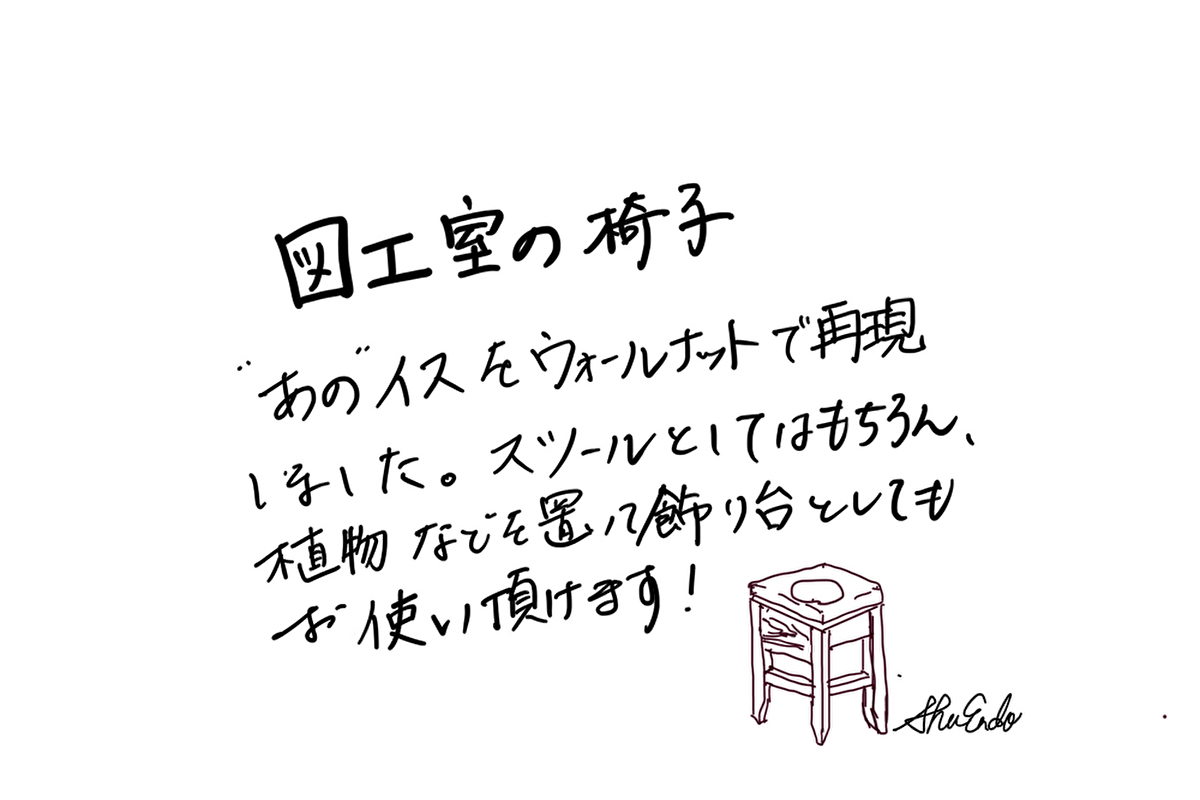 図工室の椅子
"あの"イスをウォールナットで再現
しました。スツールとしてはもちろん、
植物などを置いて飾り台としても
お使い頂けます!
Shu Endo